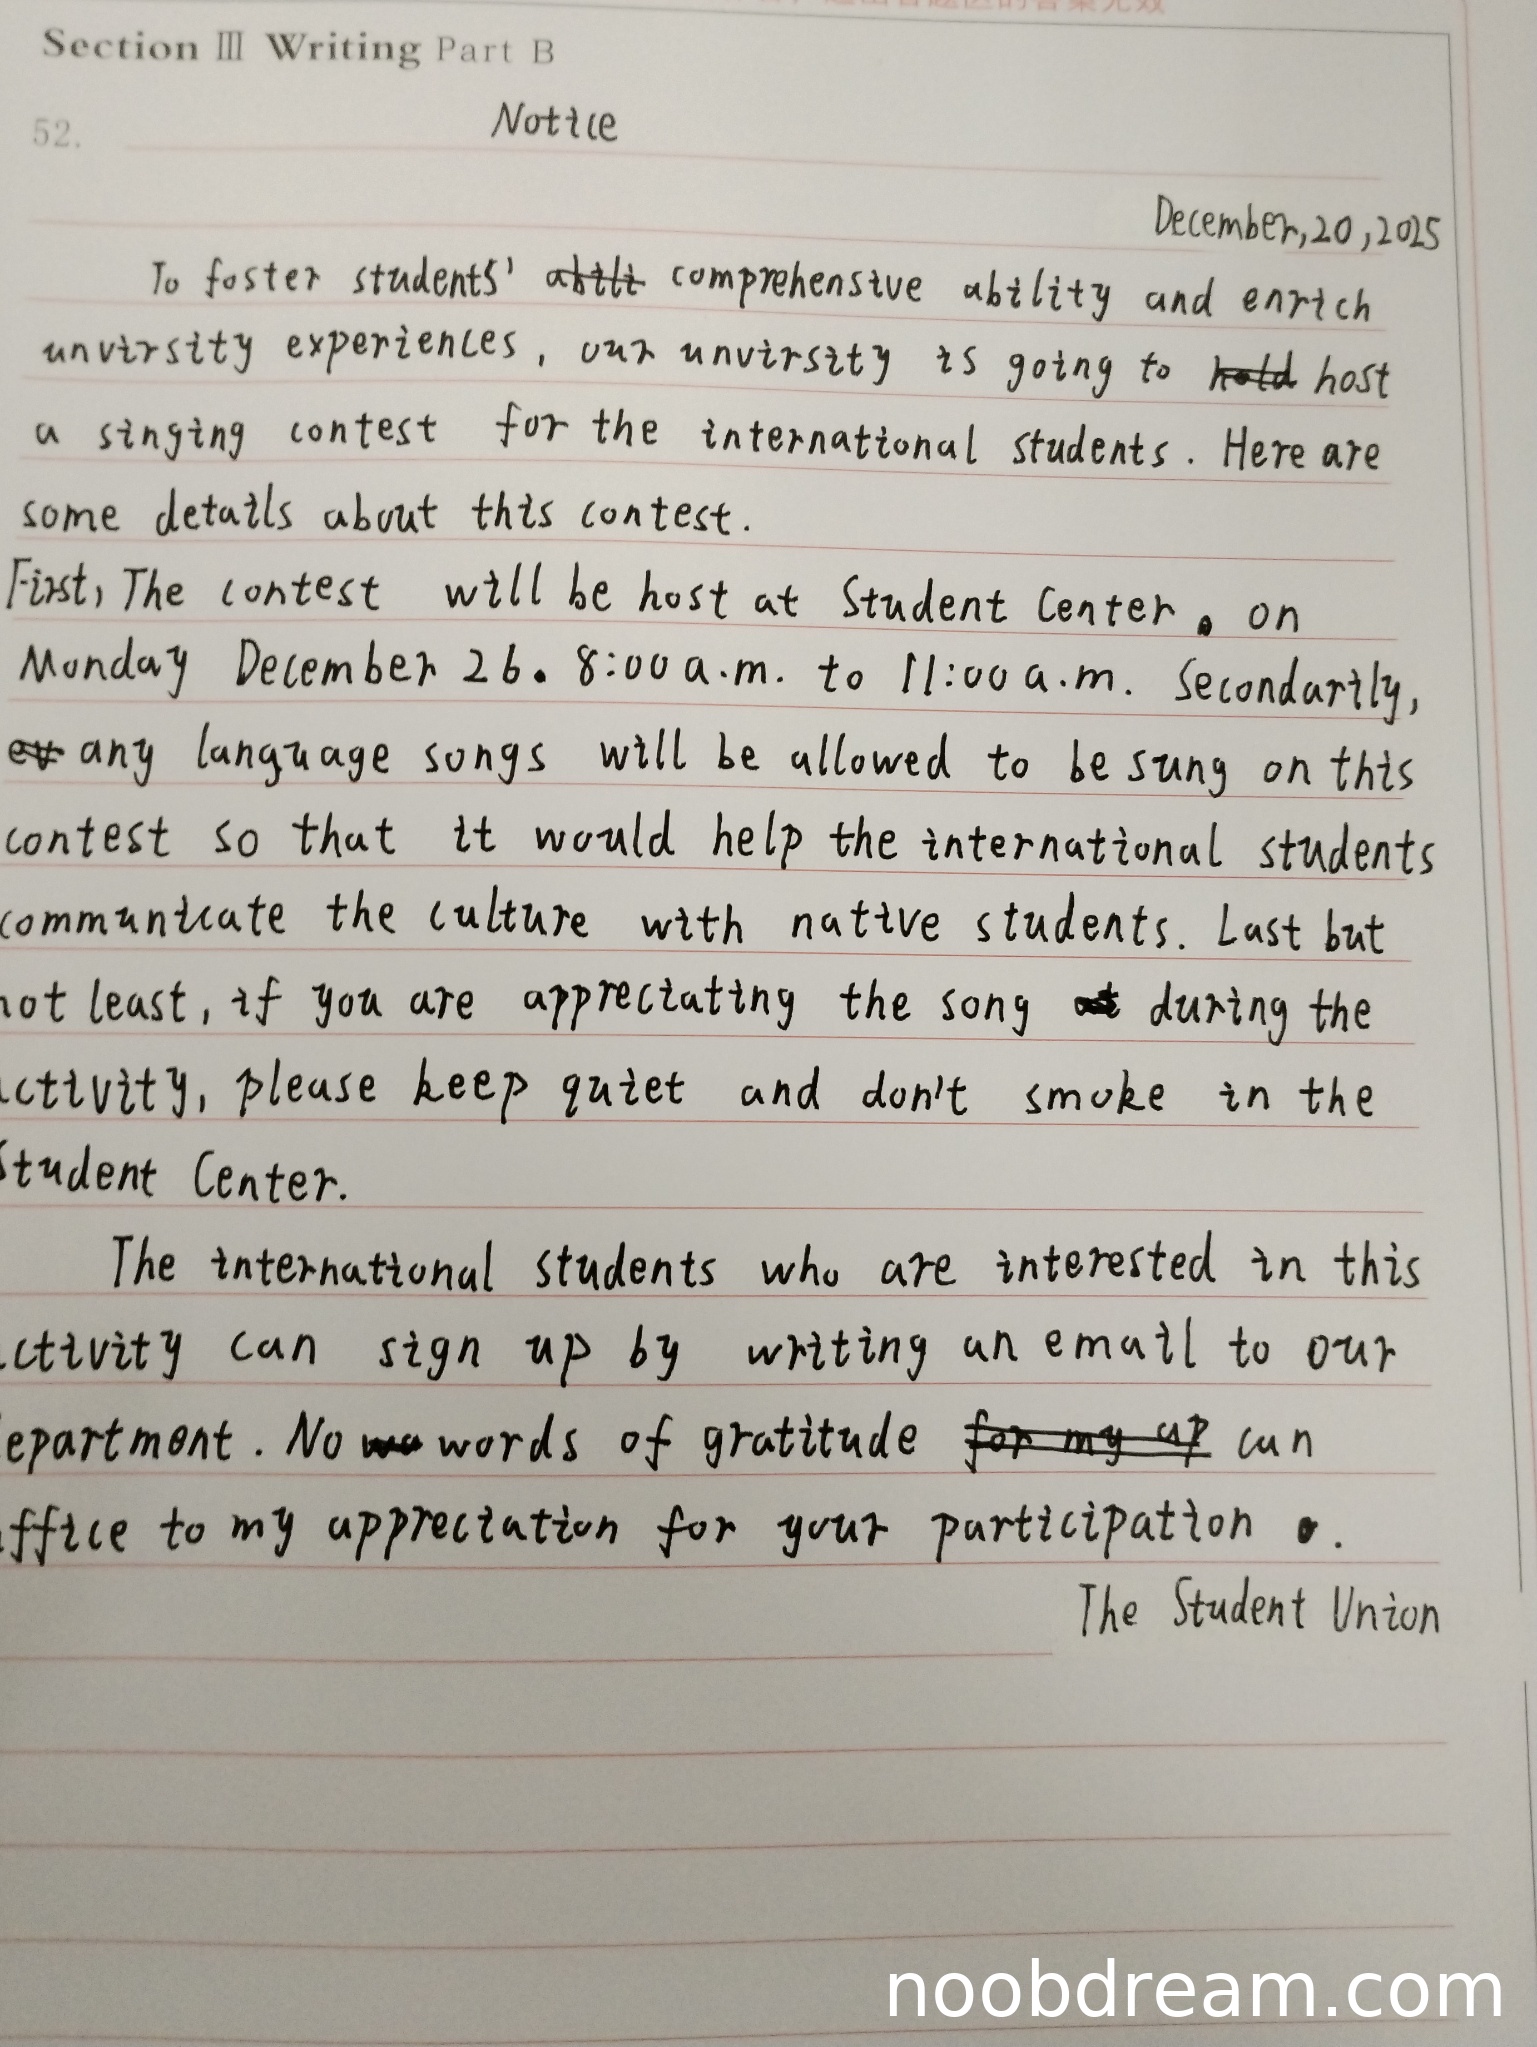 Section Ⅲ Writing Part B
52. Notice
December, 20, 2025
To foster students' comprehensive ability and enrich
unvirsity experiences, our unvirsity is going to host
a singing contest for the international students. Here are
some details about this contest.
First, The contest will be host at Student Center. on
Monday December 26. 8:00 a.m. to 11:00 a.m. Secondarily,
any language songs will be allowed to be sung on this
contest so that it would help the international students
communicate the culture with native students. Last but
not least, if you are appreciating the song during the
activity, please keep quiet and don't smoke in the
Student Center.
The international students who are interested in this
activity can sign up by writing an email to our
department. No words of gratitude can
suffice to my appreciation for your participation.
The Student Union
noobdream.com